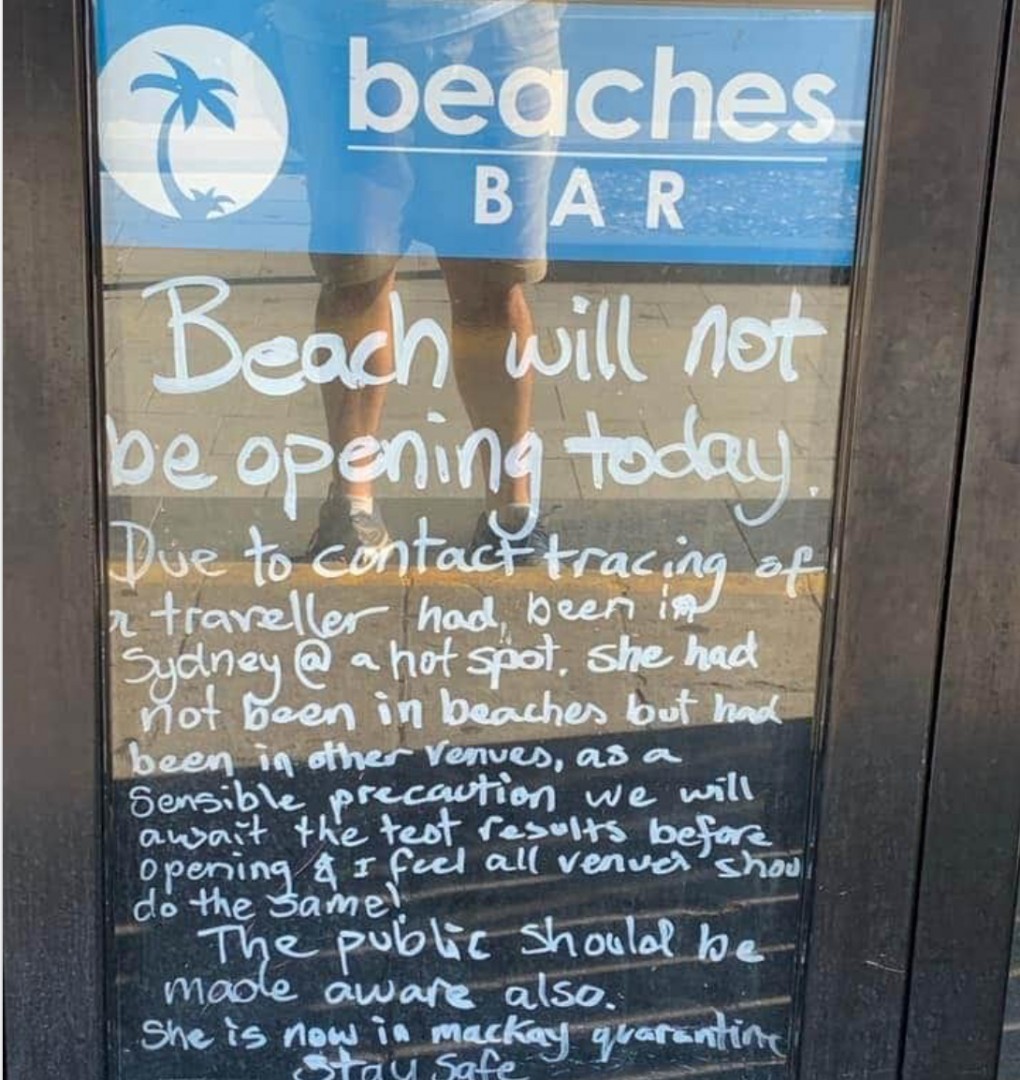 beaches
BAR
Beach will not
be opening today.
Due to contact tracing of
a traveller had been in
Sydney @ a hot spot. she had
not been in beaches but had
been in other venues, as a
Sensible precaution we will
await the test results before
opening & I feel all venues shou
do the same!
The public should be
made aware also.
She is now in mackay quarantine
Stay Safe